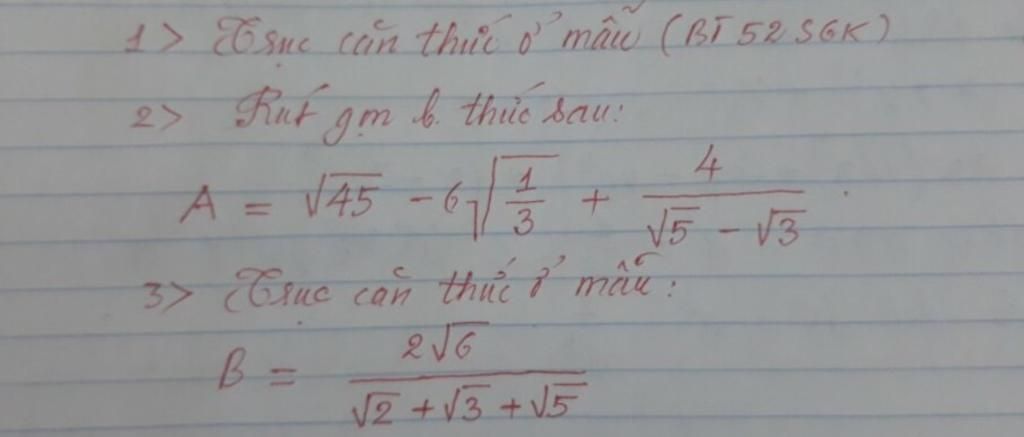 1> Trục căn thức ở mẫu (BT 52 SGK)
2> Rút gọn b. thức sau:
A = √45 - 6√(1/3) + 4/(√5 - √3).
3> Trục căn thức ở mẫu:
B = 2√6/(√2 + √3 + √5)